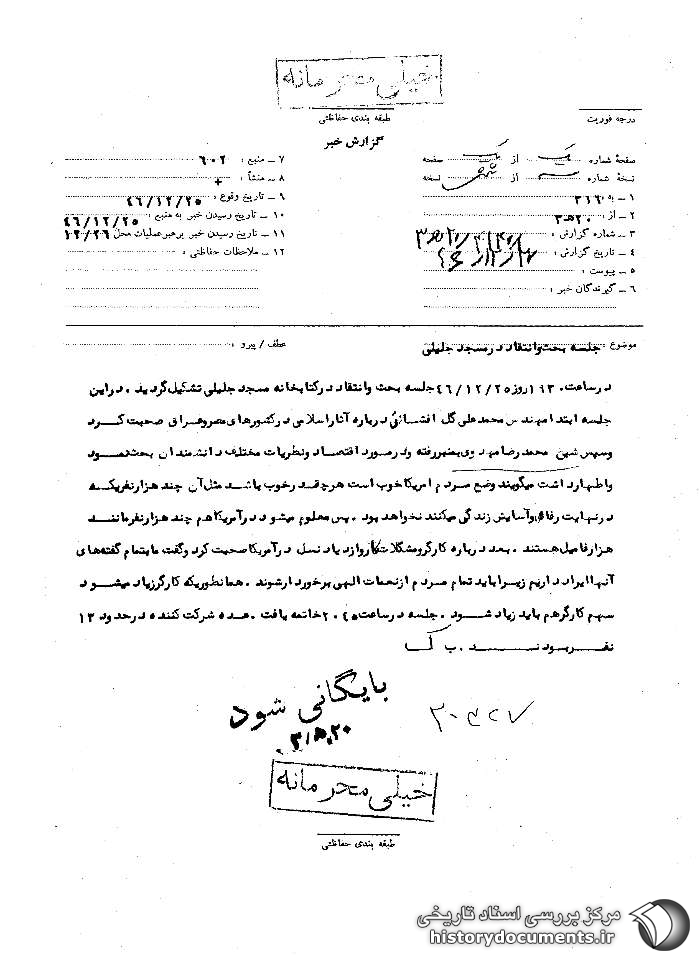 خیلی محرمانه
درجه فوریت
طبقه بندی حفاظتی
گزارش خبر
صفحهٔ شماره یک از یک صفحه
نسخهٔ شماره سه از شش نسخه
۱ ـ به ۳۱۶
۲ ـ از : ۲۰ هـ ۳
۳ ـ شماره گزارش :
۴ ـ تاریخ گزارش :
۵ ـ پیوست :
۶ ـ گیرندگان خبر :
۷ ـ منبع : ۶۰۲
۸ ـ منشأ : +
۹ ـ تاریخ وقوع : ۴۶/۱۲/۲۵
۱۰ ـ تاریخ رسیدن خبر به منبع : ۴۶/۱۲/۲۵
۱۱ ـ تاریخ رسیدن خبر برهبرعملیات محل ۱۲/۲۶
۱۲ ـ ملاحظات حفاظتی :
موضوع : جلسه بحث وانتقاد درمسجد جلیلی
عطف / پیرو :
درساعت ۱۹۳۰ روز ۴۶/۱۲/۲۵ جلسه بحث وانتقاد درکتابخانه مسجد جلیلی تشکیل گردید . دراین
جلسه ابتدا مهندس محمدعلی گل افشانی درباره آثاراسلامی درکشورهای مصروعراق صحبت کرد
وسپس شیخ محمدرضا مهدوی بمنبررفته ودرمورد اقتصاد ونظریات مختلف دانشمندان بحث نمود
واظهارداشت میگویند وضع مردم امریکا خوب است هرچقدرخوب باشد مثل آن چند هزارنفریکه
درنهایت رفاه وآسایش زندگی میکنند نخواهد بود . پس معلوم میشود درآمریکا هم چند هزارنفرمانند
هزارفامیل هستند . بعد درباره کارگرومشکلات کاروازدیاد نسل درآمریکا صحبت کرد وگفت ما بتمام گفته های
آنها ایراد داریم زیرا باید تمام مردم ازنعمات الهی برخوردارشوند . همانطوریکه کارگرزیاد میشود
سهم کارگرهم باید زیاد شود . جلسه درساعت ۲۰۴۵ خاتمه یافت . عده شرکت کننده درحدود ۱۳
نفربودند . ب ک
بایگانی شود
خیلی محرمانه
طبقه بندی حفاظتی
مرکز بررسی اسناد تاریخی
historydocuments.ir